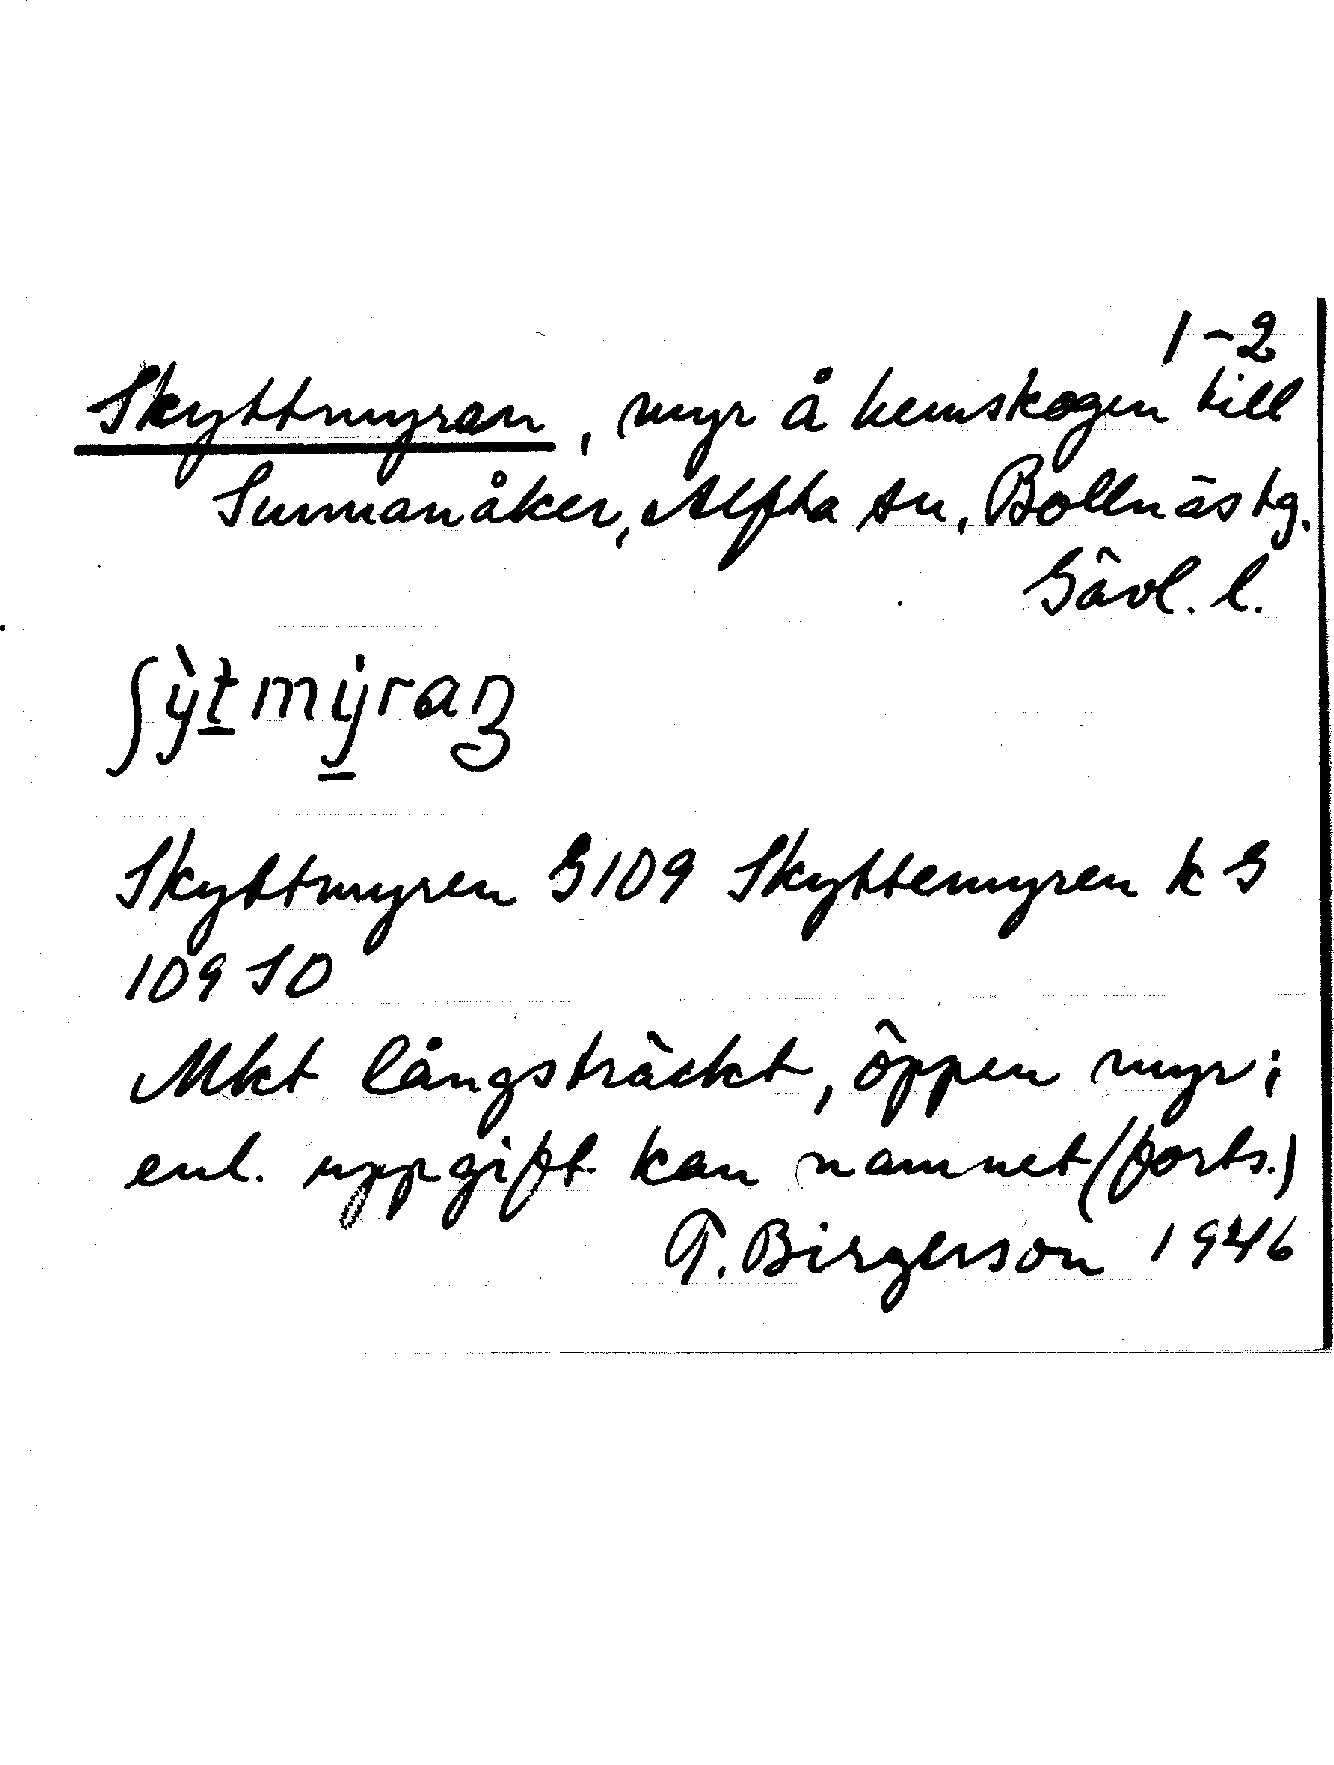 1-2
Skyttmyran, myr å hemskogen till
Sunnanåker, Alfta sn, Bollnäs tg.
Gävl. l.
ʃẏ̀tmẏran
Skyttmyren G109 Skyttemyren k G
109 SO
Mkt långsträckt, öppen myr;
enl. uppgift kan namnet (forts.)
T. Birgerson 1946